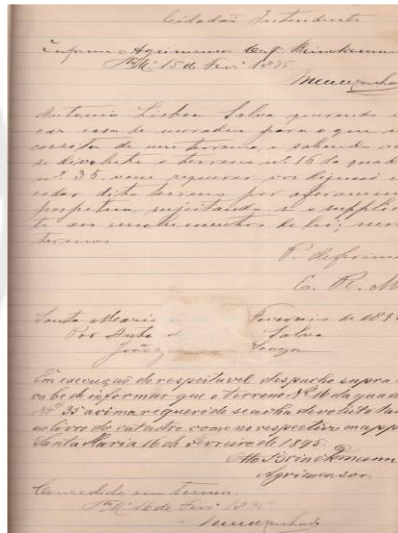 Cidadão Intendente
Informe o Agrimensor Aug. Brinckmann
Sta. Mª 15 de Fevr. 1895
Antonio Lisboa Silva querendo
car casa de moradia para o que
cessita de um terreno, e sabendo
se devoluto o terreno nº. 16 da quad
nº. 35, vem requerer vos digneis
ceder dito terreno por aforamen
perpetuo, sujeitando-se o supplic
te aos emolumentos da lei; nes
termos
P. deferime
E. R. M
Santa Maria Fevereiro de 189
Por Anto Silva
João Souza
Em execução do respeitavel despacho supra
cabe de informar que o terreno Nº 16 da quad
Nº 35 acima requerido se acha devoluto tan
no livro do catastro como no respectivo mapp
Santa Maria 16 de Fevreiro de 1895.
Brinckmann
Agrimensor
Concedido em termos.
Sta. Mª 16 de Fevr. 1895